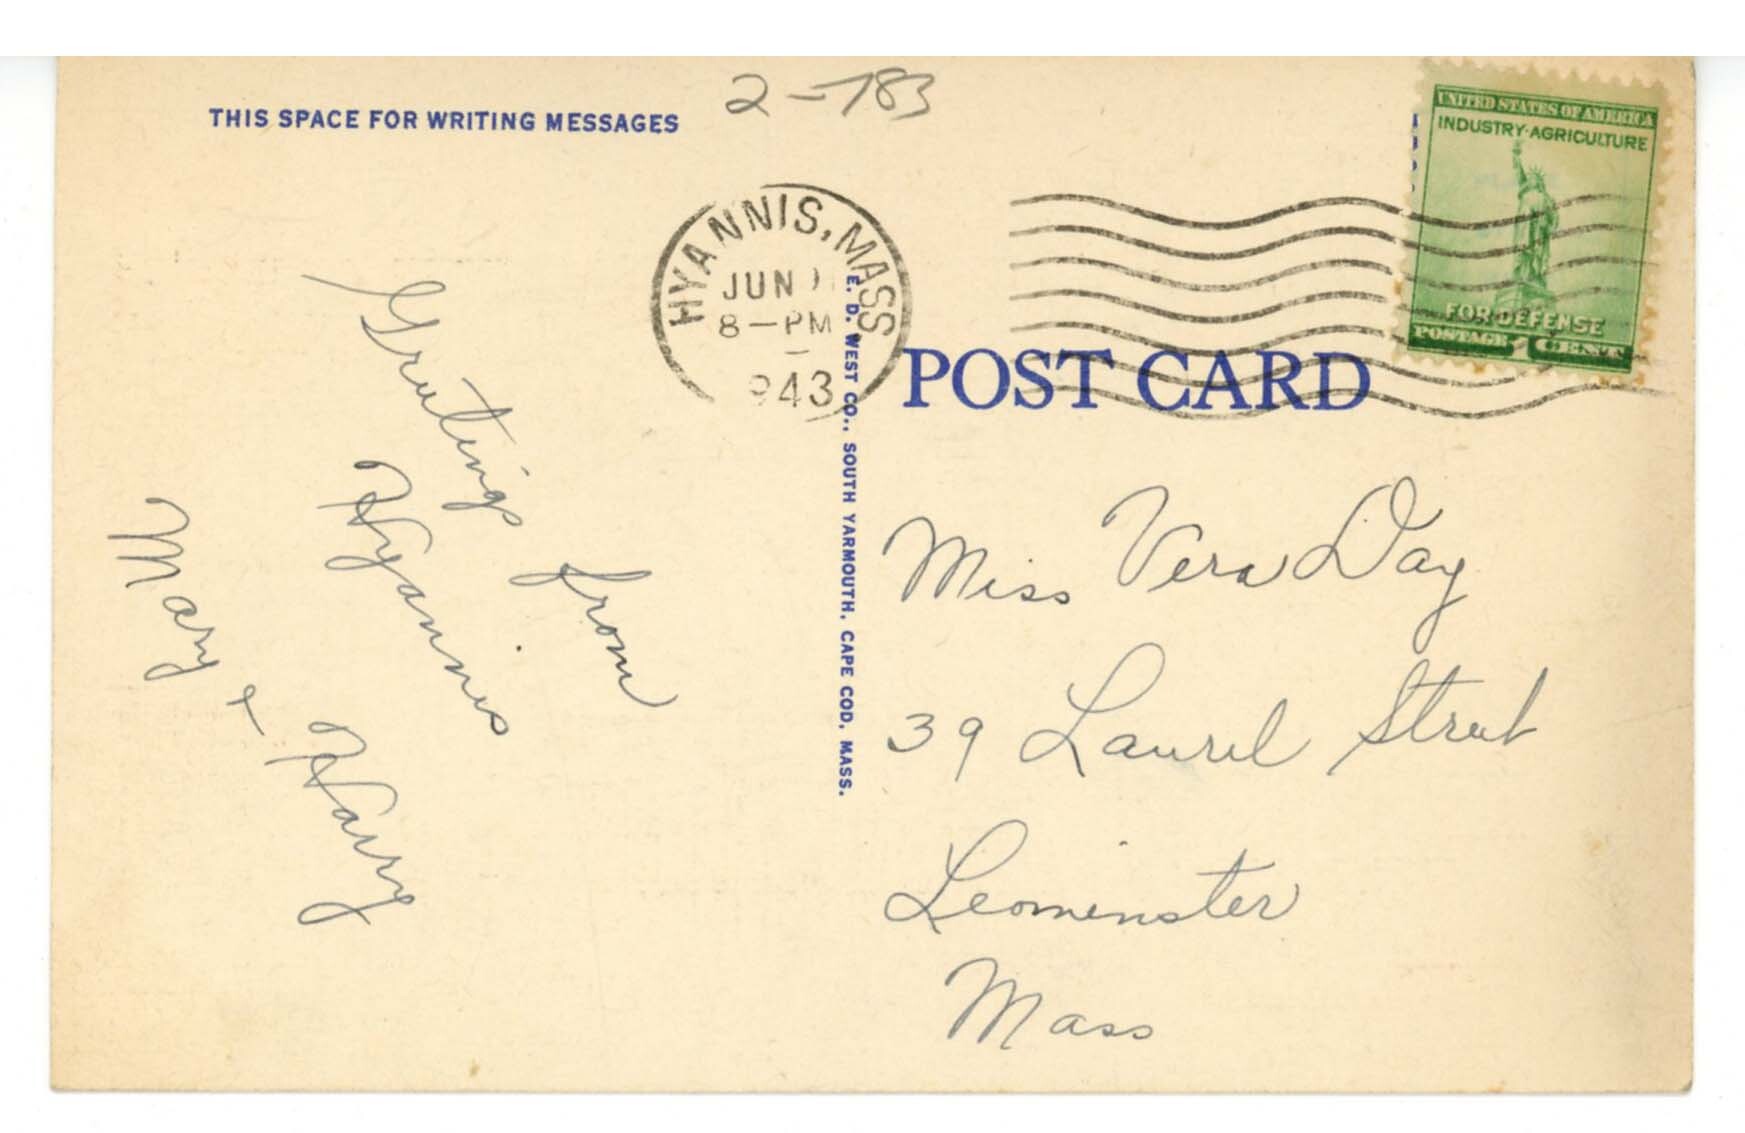 THIS SPACE FOR WRITING MESSAGES
2-783
UNITED STATES OF AMERICA
INDUSTRY·AGRICULTURE
FOR DEFENSE
POSTAGE 1 CENT
HYANNIS, MASS
JUN
8-PM
943
POST CARD
E. D. WEST CO., SOUTH YARMOUTH, CAPE COD, MASS.
Greetings from
Hyannis
Mary & Harry
Miss Vera Day
39 Laurel Street
Leominster
Mass